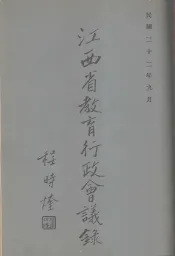 民國二十二年九月
江西省教育行政會議錄
程時煃